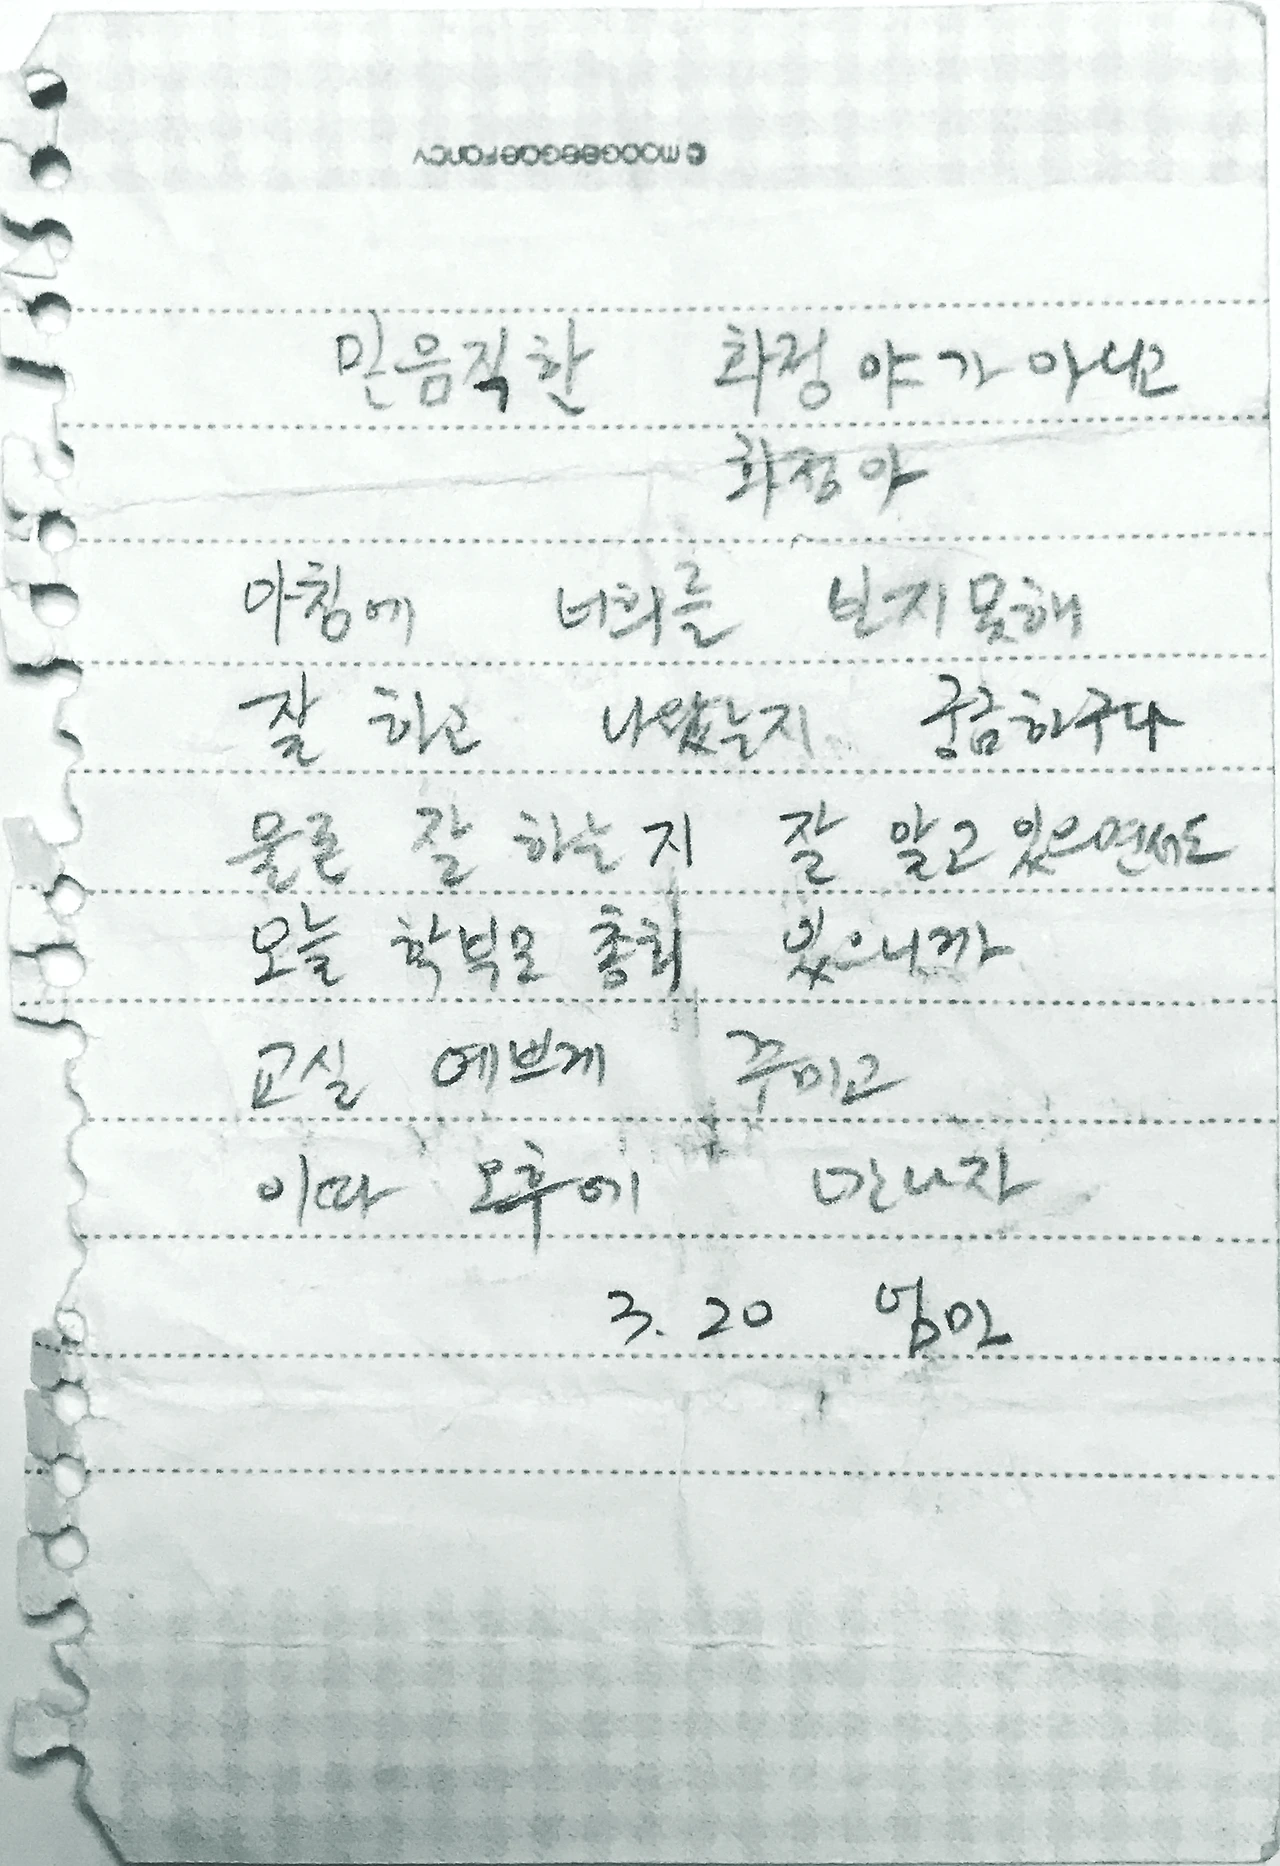 ©modoogaeGaeFancy
믿음직한 화정야가 아니고
화정아
아침에 너희를 보지못해
잘 하고 나왔는지 궁금하구나
물론 잘 하는지 잘 알고 있으면서도
오늘 학부모 총회 있으니까
교실 예쁘게 꾸미고
이따 오후에 만나자
3. 20 엄마